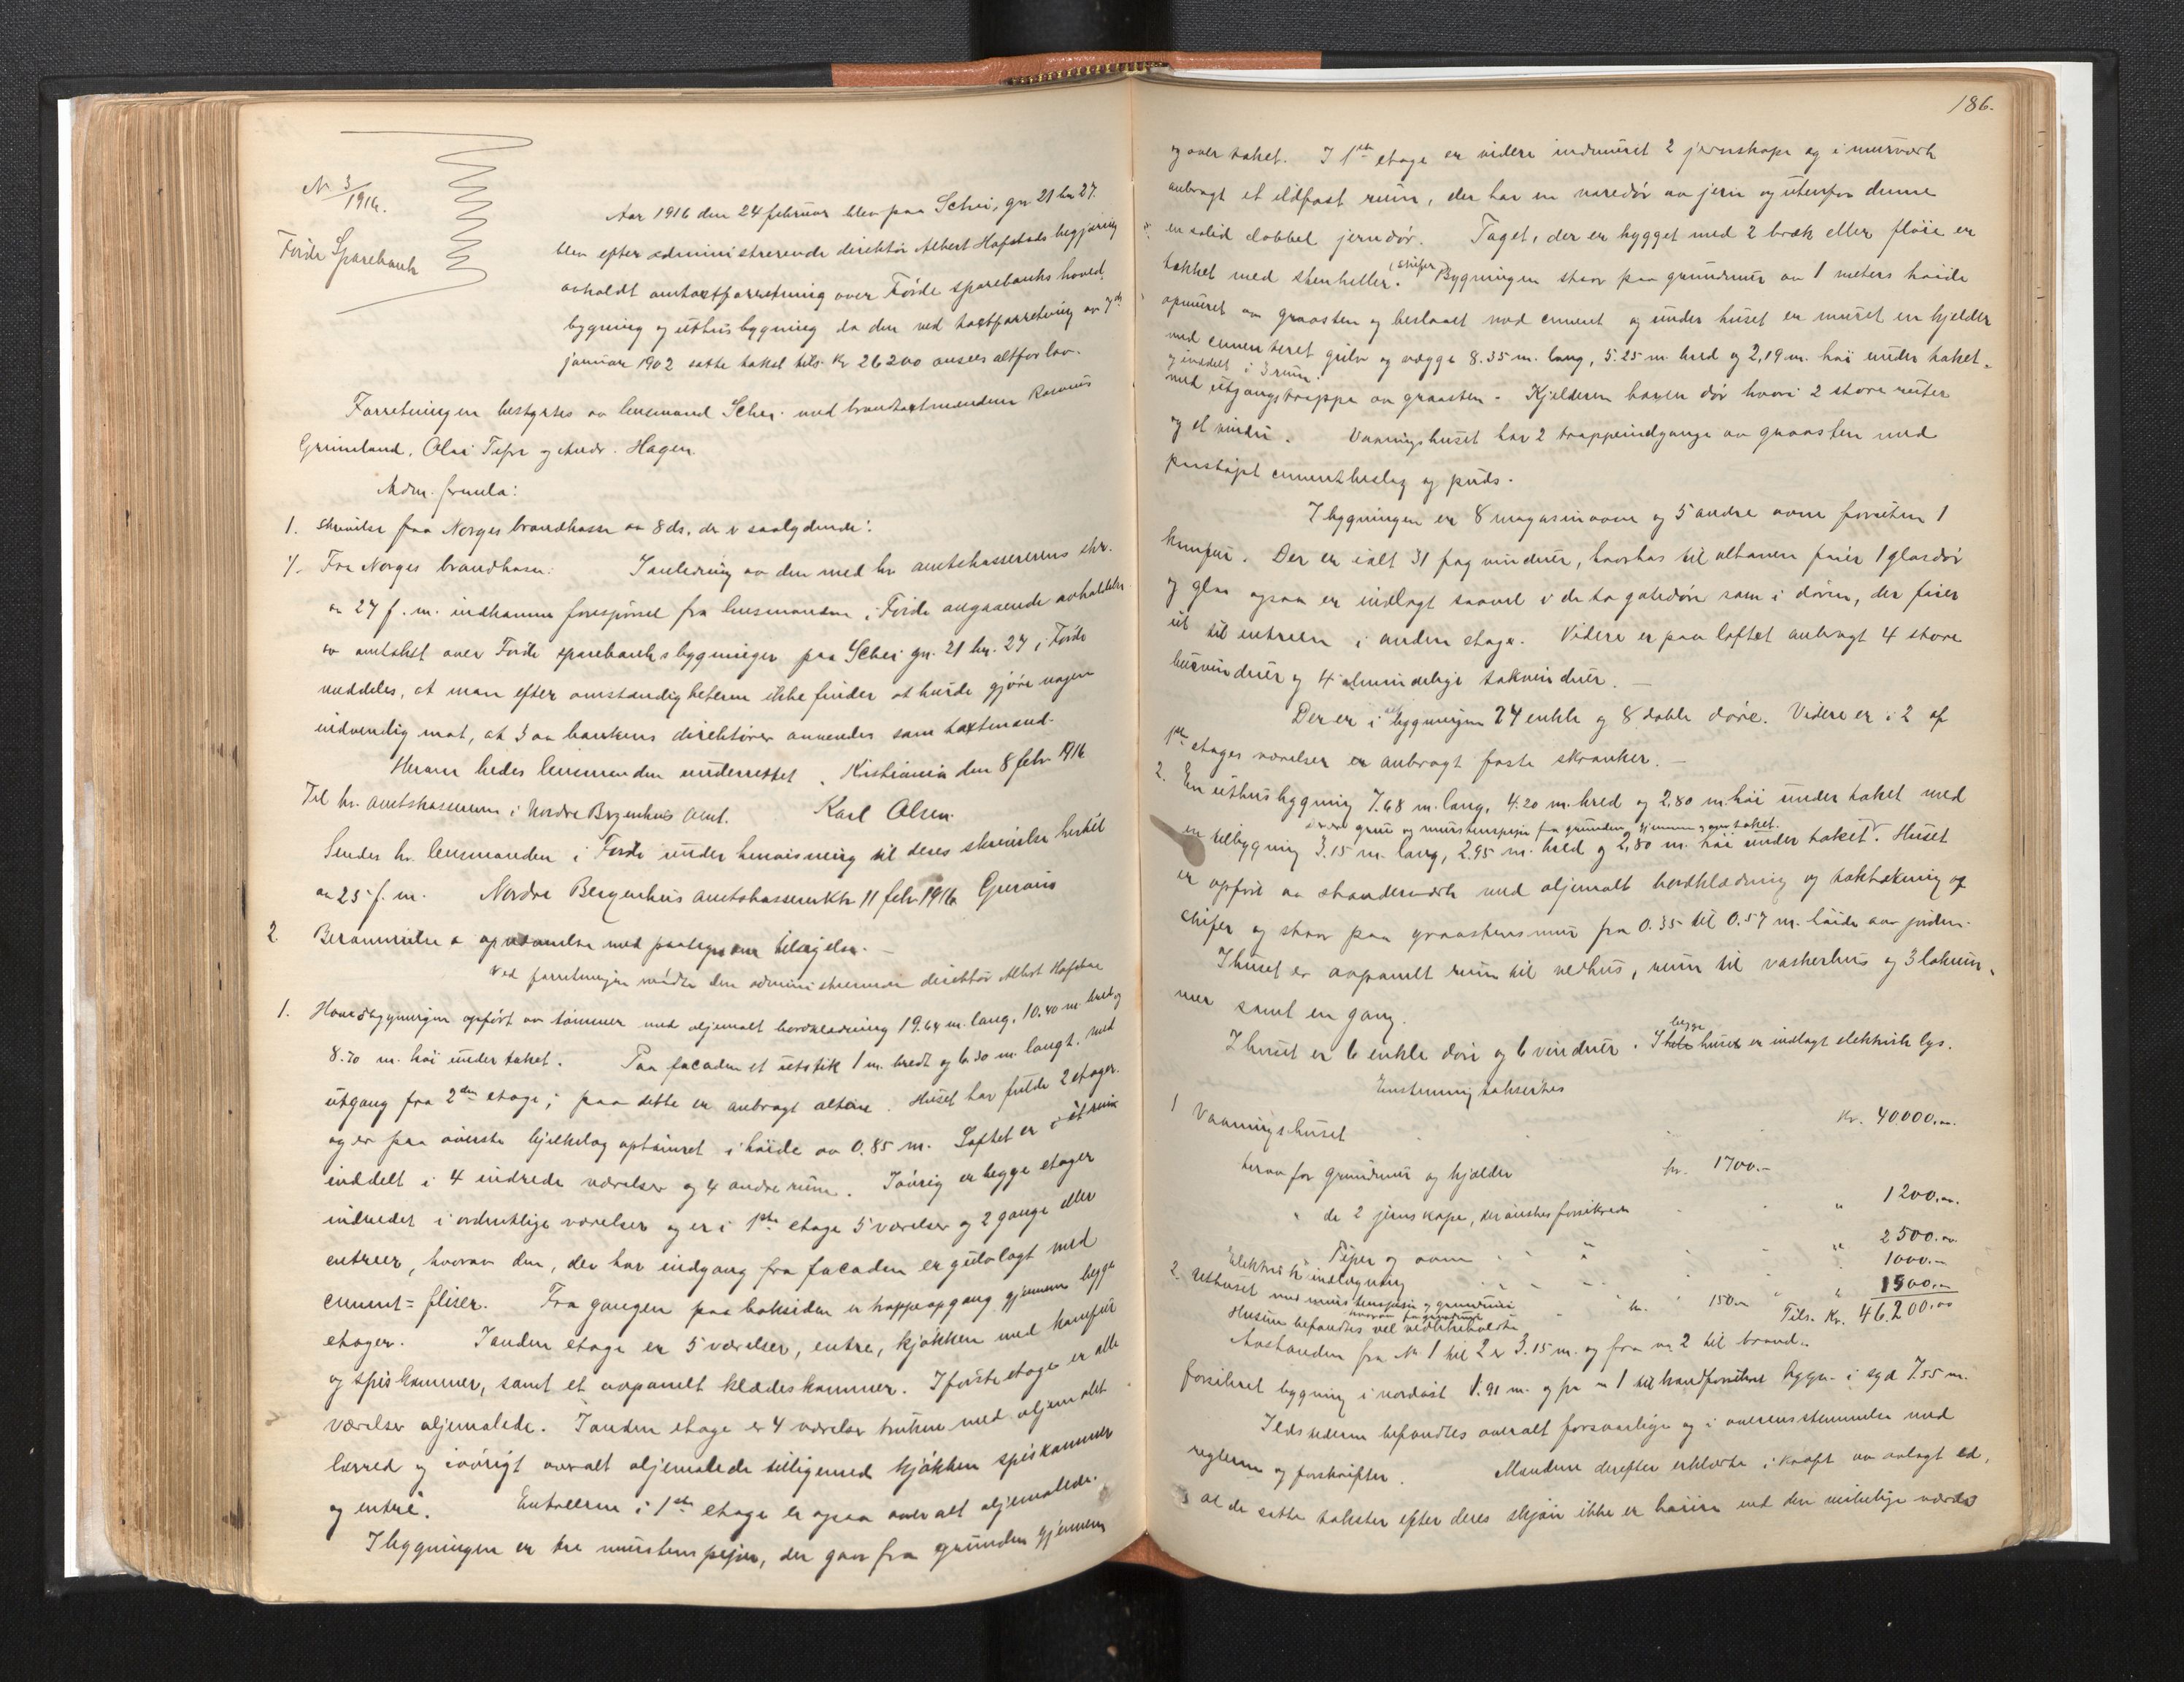 186.
N. 3/1916.
Förde Sparebank
Aar 1916 den 24 februar blev paa Schei, gn 21 bn 27.
blev efter administrerende direktör Albert Hafstads begjæring
avholdt omtaxtforretning over Förde sparebanks hoved-
bygning og uthusbygning da den ved taxtforretning av 7de
januar 1902 satte takst tils. kr 26200 ansees altfor lav.
Forretningen bestyrtes av lensmand Schei med brandtaxtmændene Rasmus
Grimeland, Olai Tefre og Andr. Hagen.
Adm. fremla:
1. skrivelse fra Norges brandkasse av 8 ds. der er saalydende:
1/. Fra Norges brandkasse. I anledning av den med hr amtskassererens skr.
av 27 f. m. indkomne forespörsel fra lensmanden i Förde angaaende avholdelse
av omtakst over Förde sparebanks bygninger paa Schei gn. 21 bn. 27 i Förde
meddeles, at man efter omstændigheterne ikke finder at burde gjöre nogen
indvending mot, at 3 av bankens direktörer anvendes som taxtmænd.
Herom bedes lensmanden underrettet. Kristiania den 8 febr. 1916
Til hr. amtskassereren i Nordre Bergenhus amt. Karl Olsen.
Sendes hr. lensmanden i Förde under henvisning til deres skrivelse hertil
av 25 f. m. Nordre Bergenhus amtskassererktr. 11 febr 1916
2. Berammelse og opnævnelse med paategn om vælgelse.
Ved forretningen mödte den administrerende direktör Albert Hafstad
1. Hovedbygningen opfört av tömmer med oljemalt bordklædning 19.64 m. lang, 10.40 m. bred og
8.70 m. höi under taket. Paa facaden et utstik 1 m. bredt og 6.30 m. langt. med
utgang fra 2den etage; paa dette er anbragt altane. Huset har fulde 2 etager.
og er paa överste bjelkelag optömret i höide av 0.85 m. Loftet er i et rum
inddelt i 4 indrede værelser og 4 andre rum. Iövrig er begge etager
indredet i ordentlige værelser og er i 1ste etage 5 værelser og 2 gange eller
entreer, hvorav den, der har indgang fra facaden er gulvlagt med
cement=fliser. Fra gangen paa baksiden er trappeopgang gjennem begge
etager. I anden etage er 5 værelser, entre, kjökken med komfur
og spiskammer, samt et avpanelt klædeskammer. I förste etage er alle
værelser oljemalede. I anden etage er 4 værelser trukne med oljemalet
lærred og iövrigt overalt oljemalede tilligemed kjökken spiskammer
og entré. Entreerne i 1ste etage er ogsaa overalt oljemalede.
I bygningen er tre murstenspiper, der gaar fra grunden gjennem
og over taket. I 1ste etage er videre indmuret 2 jernskape og i murverk
anbragt et ildfast rum, der har en varedör av jern og utenfor denne
en solid dobbel jerndör. Taget, der er bygget med 2 bræk eller flöie er
tækket med stenheller. (skifer) Bygningen staar paa grundmur av 1 meters höide
opmuret av graasten og beslaaet med cement og under huset er muret en kjelder
med cementeret gulv og vægge 8.35 m. lang, 5.25 m. bred og 2,19 m. höi under taket.
og inddelt i 3 rum.
med utgangstrappe av graasten. Kjelderen har en dör hvori 2 store ruter
og et vindu. Vaaningshuset har 2 trappeindgange av graasten med
paastöpt cementbeslag og puds.
I bygningen er 8 magasinovne og 5 andre ovne foruten 1
komfur. Der er ialt 31 fag vinduer, hvorhos til altanen förer 1 glasdör
og glas ogsaa er indlagt saavel i de to gatedöre som i dören, der förer
ut til entreen i anden etage. Videre er paa loftet anbragt 4 store
buevinduer og 4 almindelige takvinduer.
Der er i alt bygningen 24 enkle og 8 doble döre. Videre er i 2 af
1ste etages værelser er anbragt faste skranker.
2. En uthusbygning 7.68 m. lang, 4.20 m. bred og 2,80 m. höi under taket med
svære grue og murstenspipe fra grunden gjennem og over taket.
en tilbygning 3.15 m. lang, 2.95 m. bred og 2,80 m. höi under taket. Huset
er opfört av standerverk med oljemalt bordklædning og taktækning af
skifer og staar paa graastensmur fra 0.35 til 0.57 m. höide over jorden.
I huset er avpanelt rum til vedhus, rum til vaskerhus og 3 lokrum-
mer samt en gang.
I huset er 6 enkle döre og 6 vinduer. I begge huse er indlagt elektrisk lys.
Enstemmig taksertes
1 Vaaningshuset kr. 40000,00.
herav for grundmur og kjælder kr. 1700.-
" de 2 jernskape, der önskes forsikrede " 1200,00.
Piper og ovne " 2500.00
Elektrisk indlægning 1000.-
2. Uthuset med murstenspipe og grundmur " 1500,-
hvorav for grundmur kr. 150.- Tils. Kr. 46.200.00
Husene befandtes vel vedlikeholdte
Avstanden fra No. 1 til 2 er 3.15 m. og fra nr. 2 til brand-
forsikret bygning i nordöst 1.91 m. og fra nr 1 til brandforsikret bygn. i syd 7.55 m.
Ildstederne befandtes overalt forsvarlige og i overensstemmelse med
reglerne og forskrifter. Mændene derefter erklærte i kraft av avlagt ed,
at de satte takster efter deres skjön ikke er höiere end den virkelige værdi